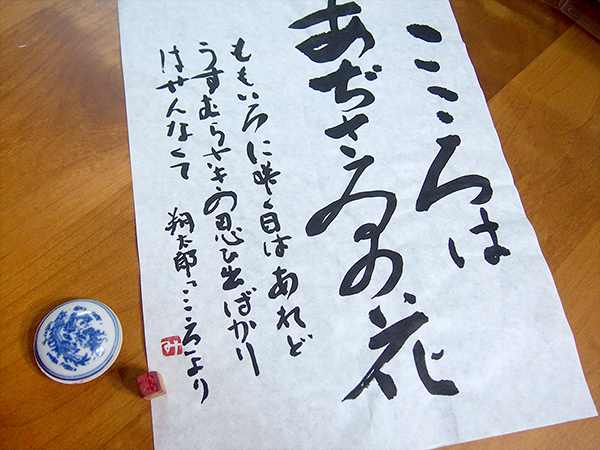 こころは
あぢさゐの花
ももいろに咲く日はあれど
うすむらさきの思ひ出ばかり
はせんなくて
朔太郎「こころ」より